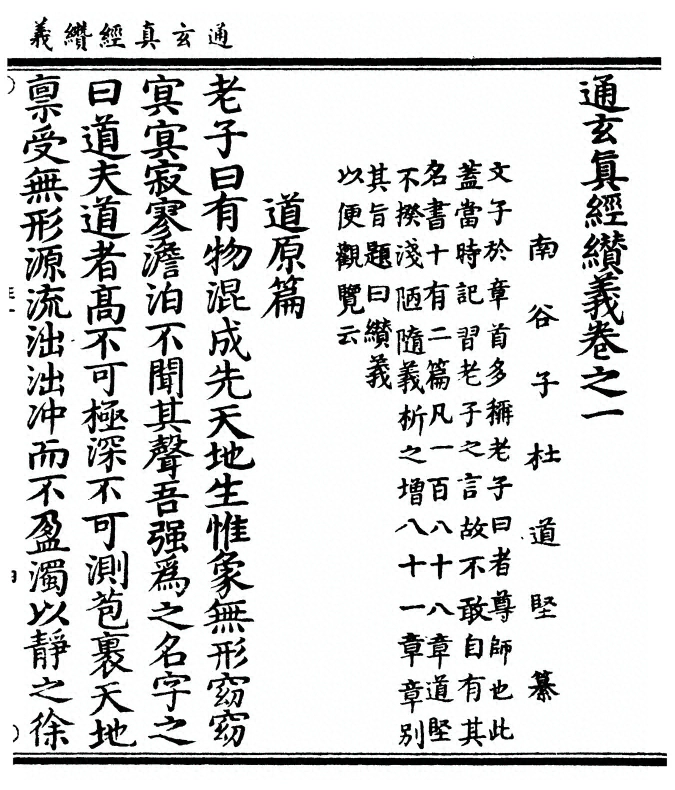 通玄真經纘義
通玄眞經纘義卷之一
南谷子杜道堅纂
文子於章首多稱老子曰者尊師也此
蓋當時記習老子之言故不敢自有其
名書十有二篇凡一百八十八章道堅
不揆淺陋隨義析之增八十一章章別
其旨題曰纘義
以便觀覽云
道原篇
老子曰有物混成先天地生惟象無形窈窈
冥冥寂寥澹泊不聞其聲吾强爲之名字之
曰道夫道者高不可極深不可測苞裹天地
禀受無形源流泏泏冲而不盈濁以靜之徐